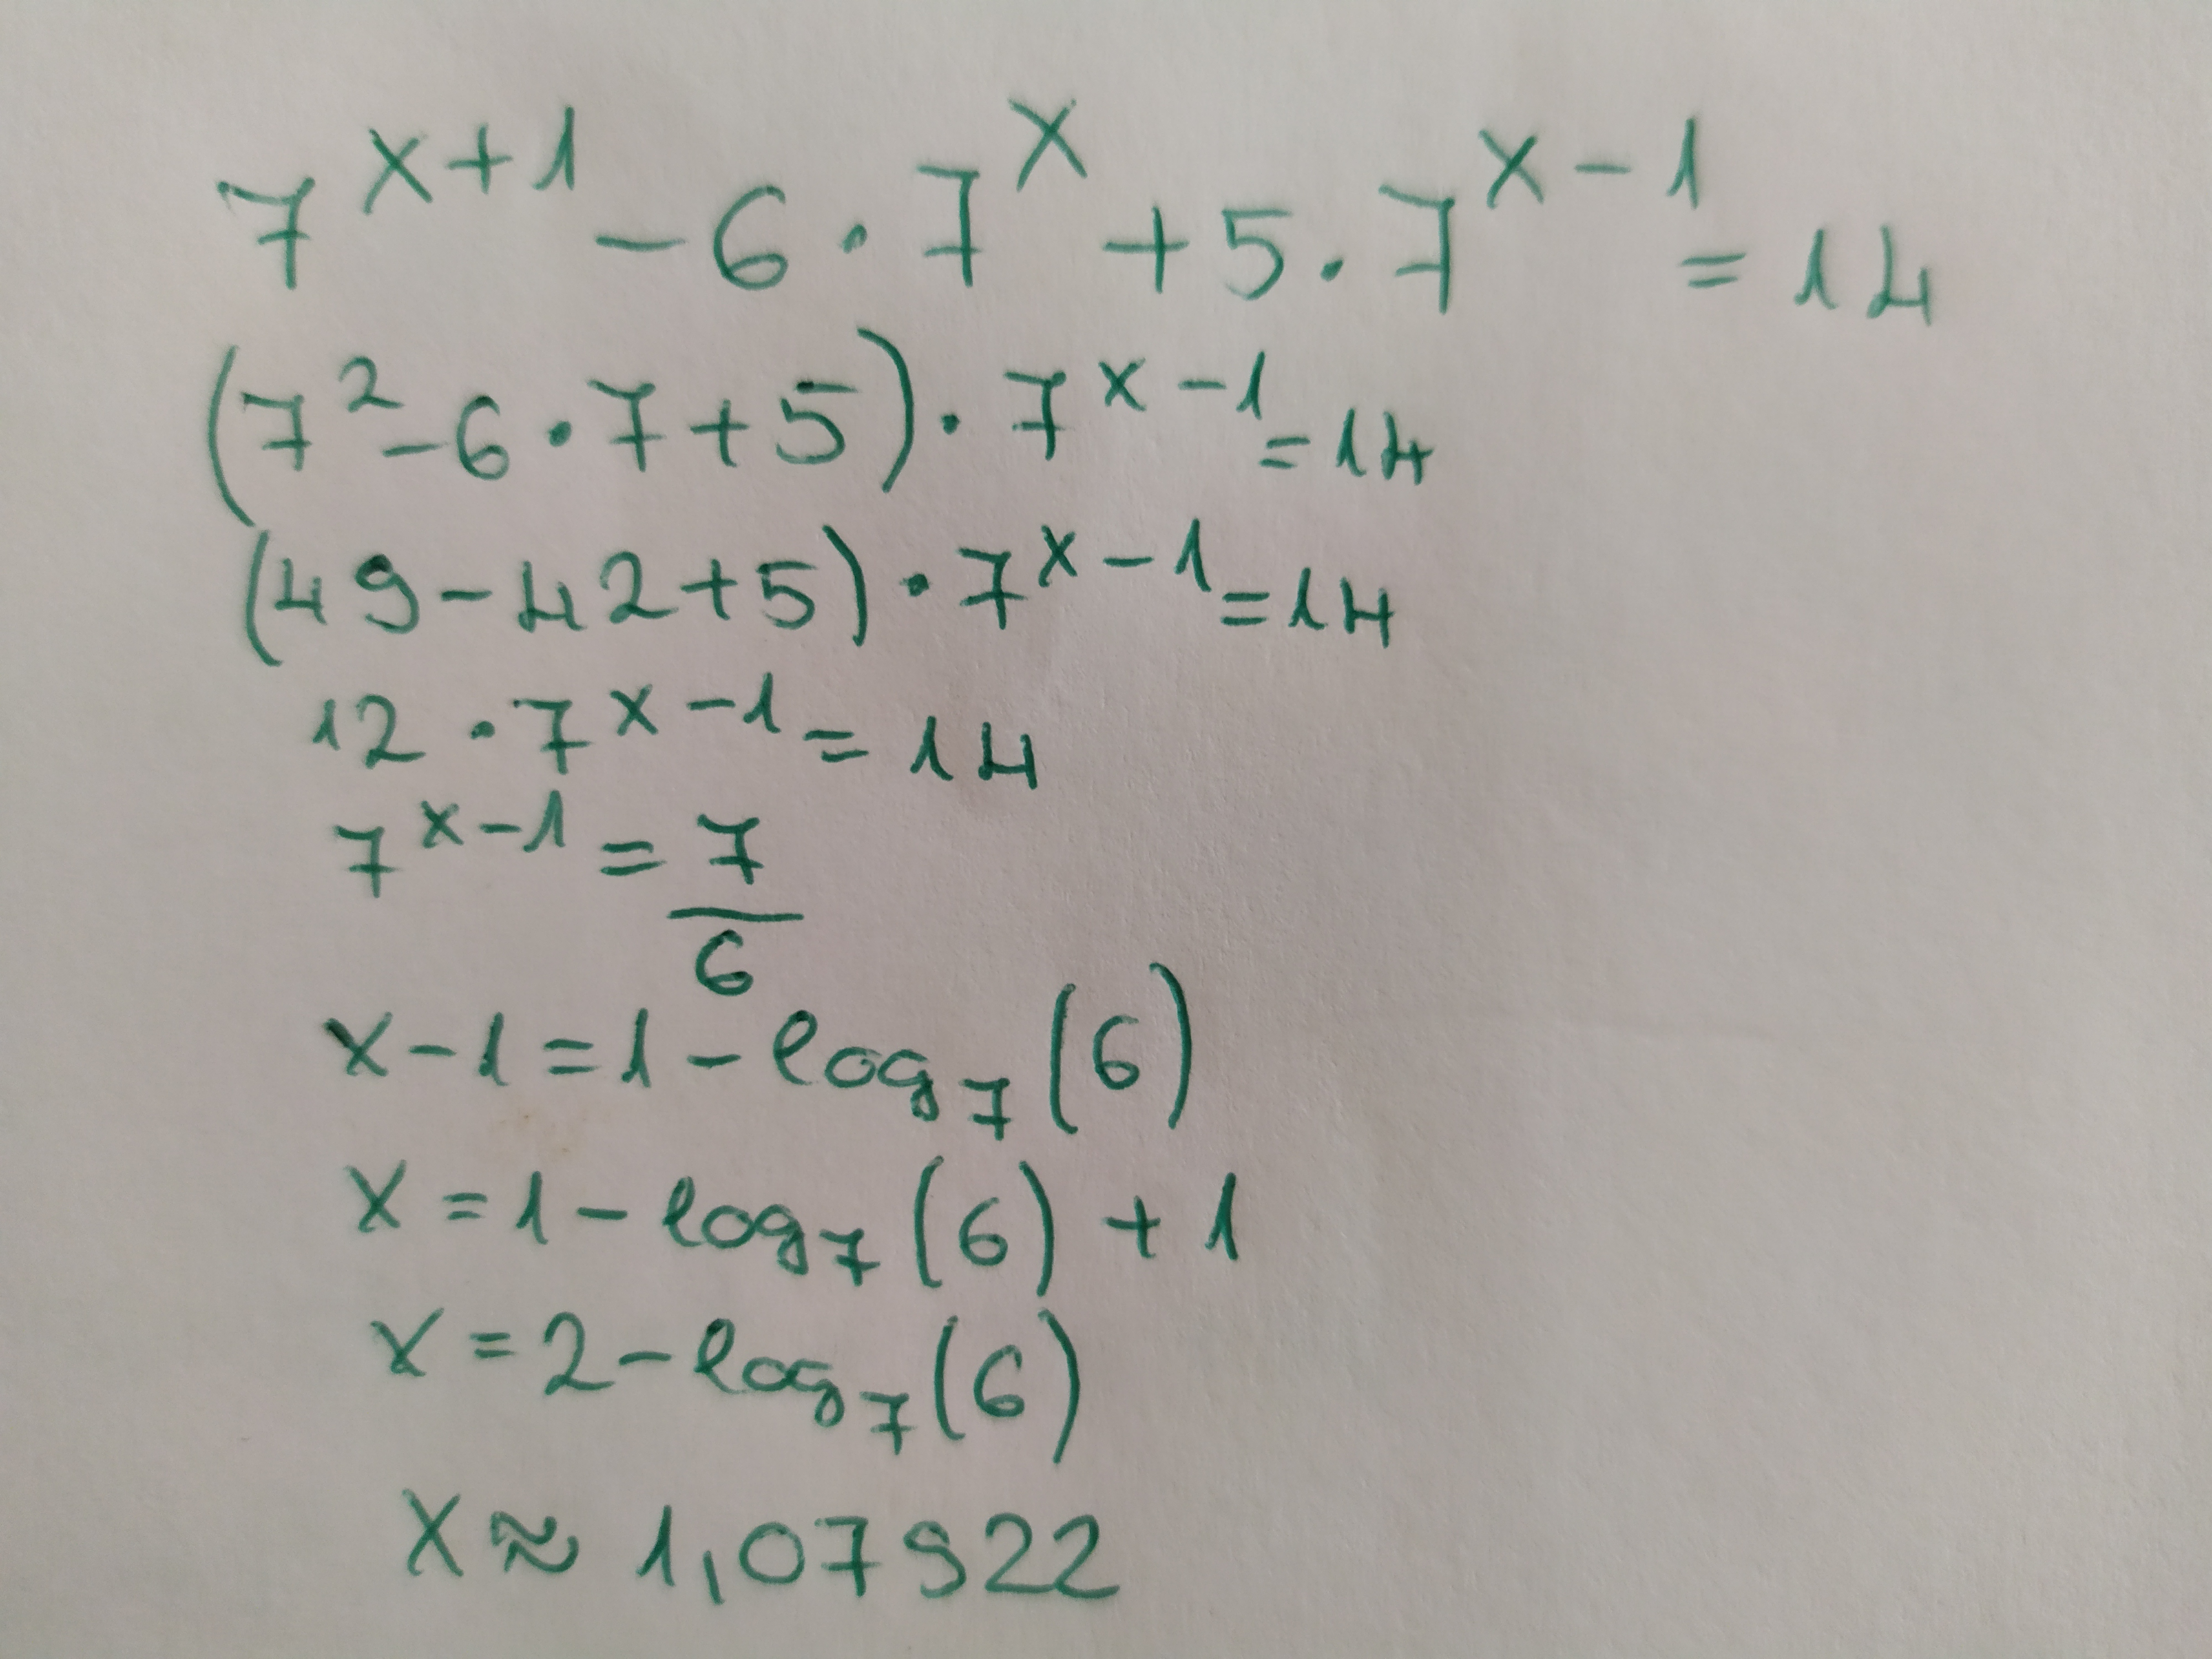 7^(x+1) - 6 · 7^x + 5 · 7^(x-1) = 14
(7² - 6 · 7 + 5) · 7^(x-1) = 14
(49 - 42 + 5) · 7^(x-1) = 14
12 · 7^(x-1) = 14
7^(x-1) = 7/6
x - 1 = 1 - log₇(6)
x = 1 - log₇(6) + 1
x = 2 - log₇(6)
x ≈ 1,07922